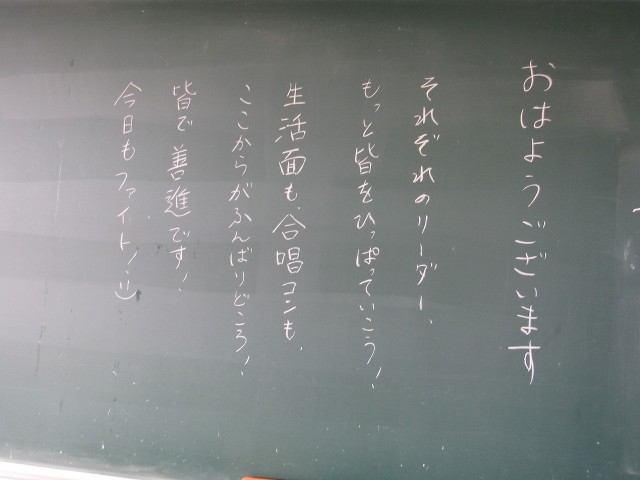 おはようございます
それぞれのリーダー、
もっと皆をひっぱっていこう!
生活面も、合唱コンも、
ここからがふんばりどころ!
皆で善進です!
今日もファイト! :)